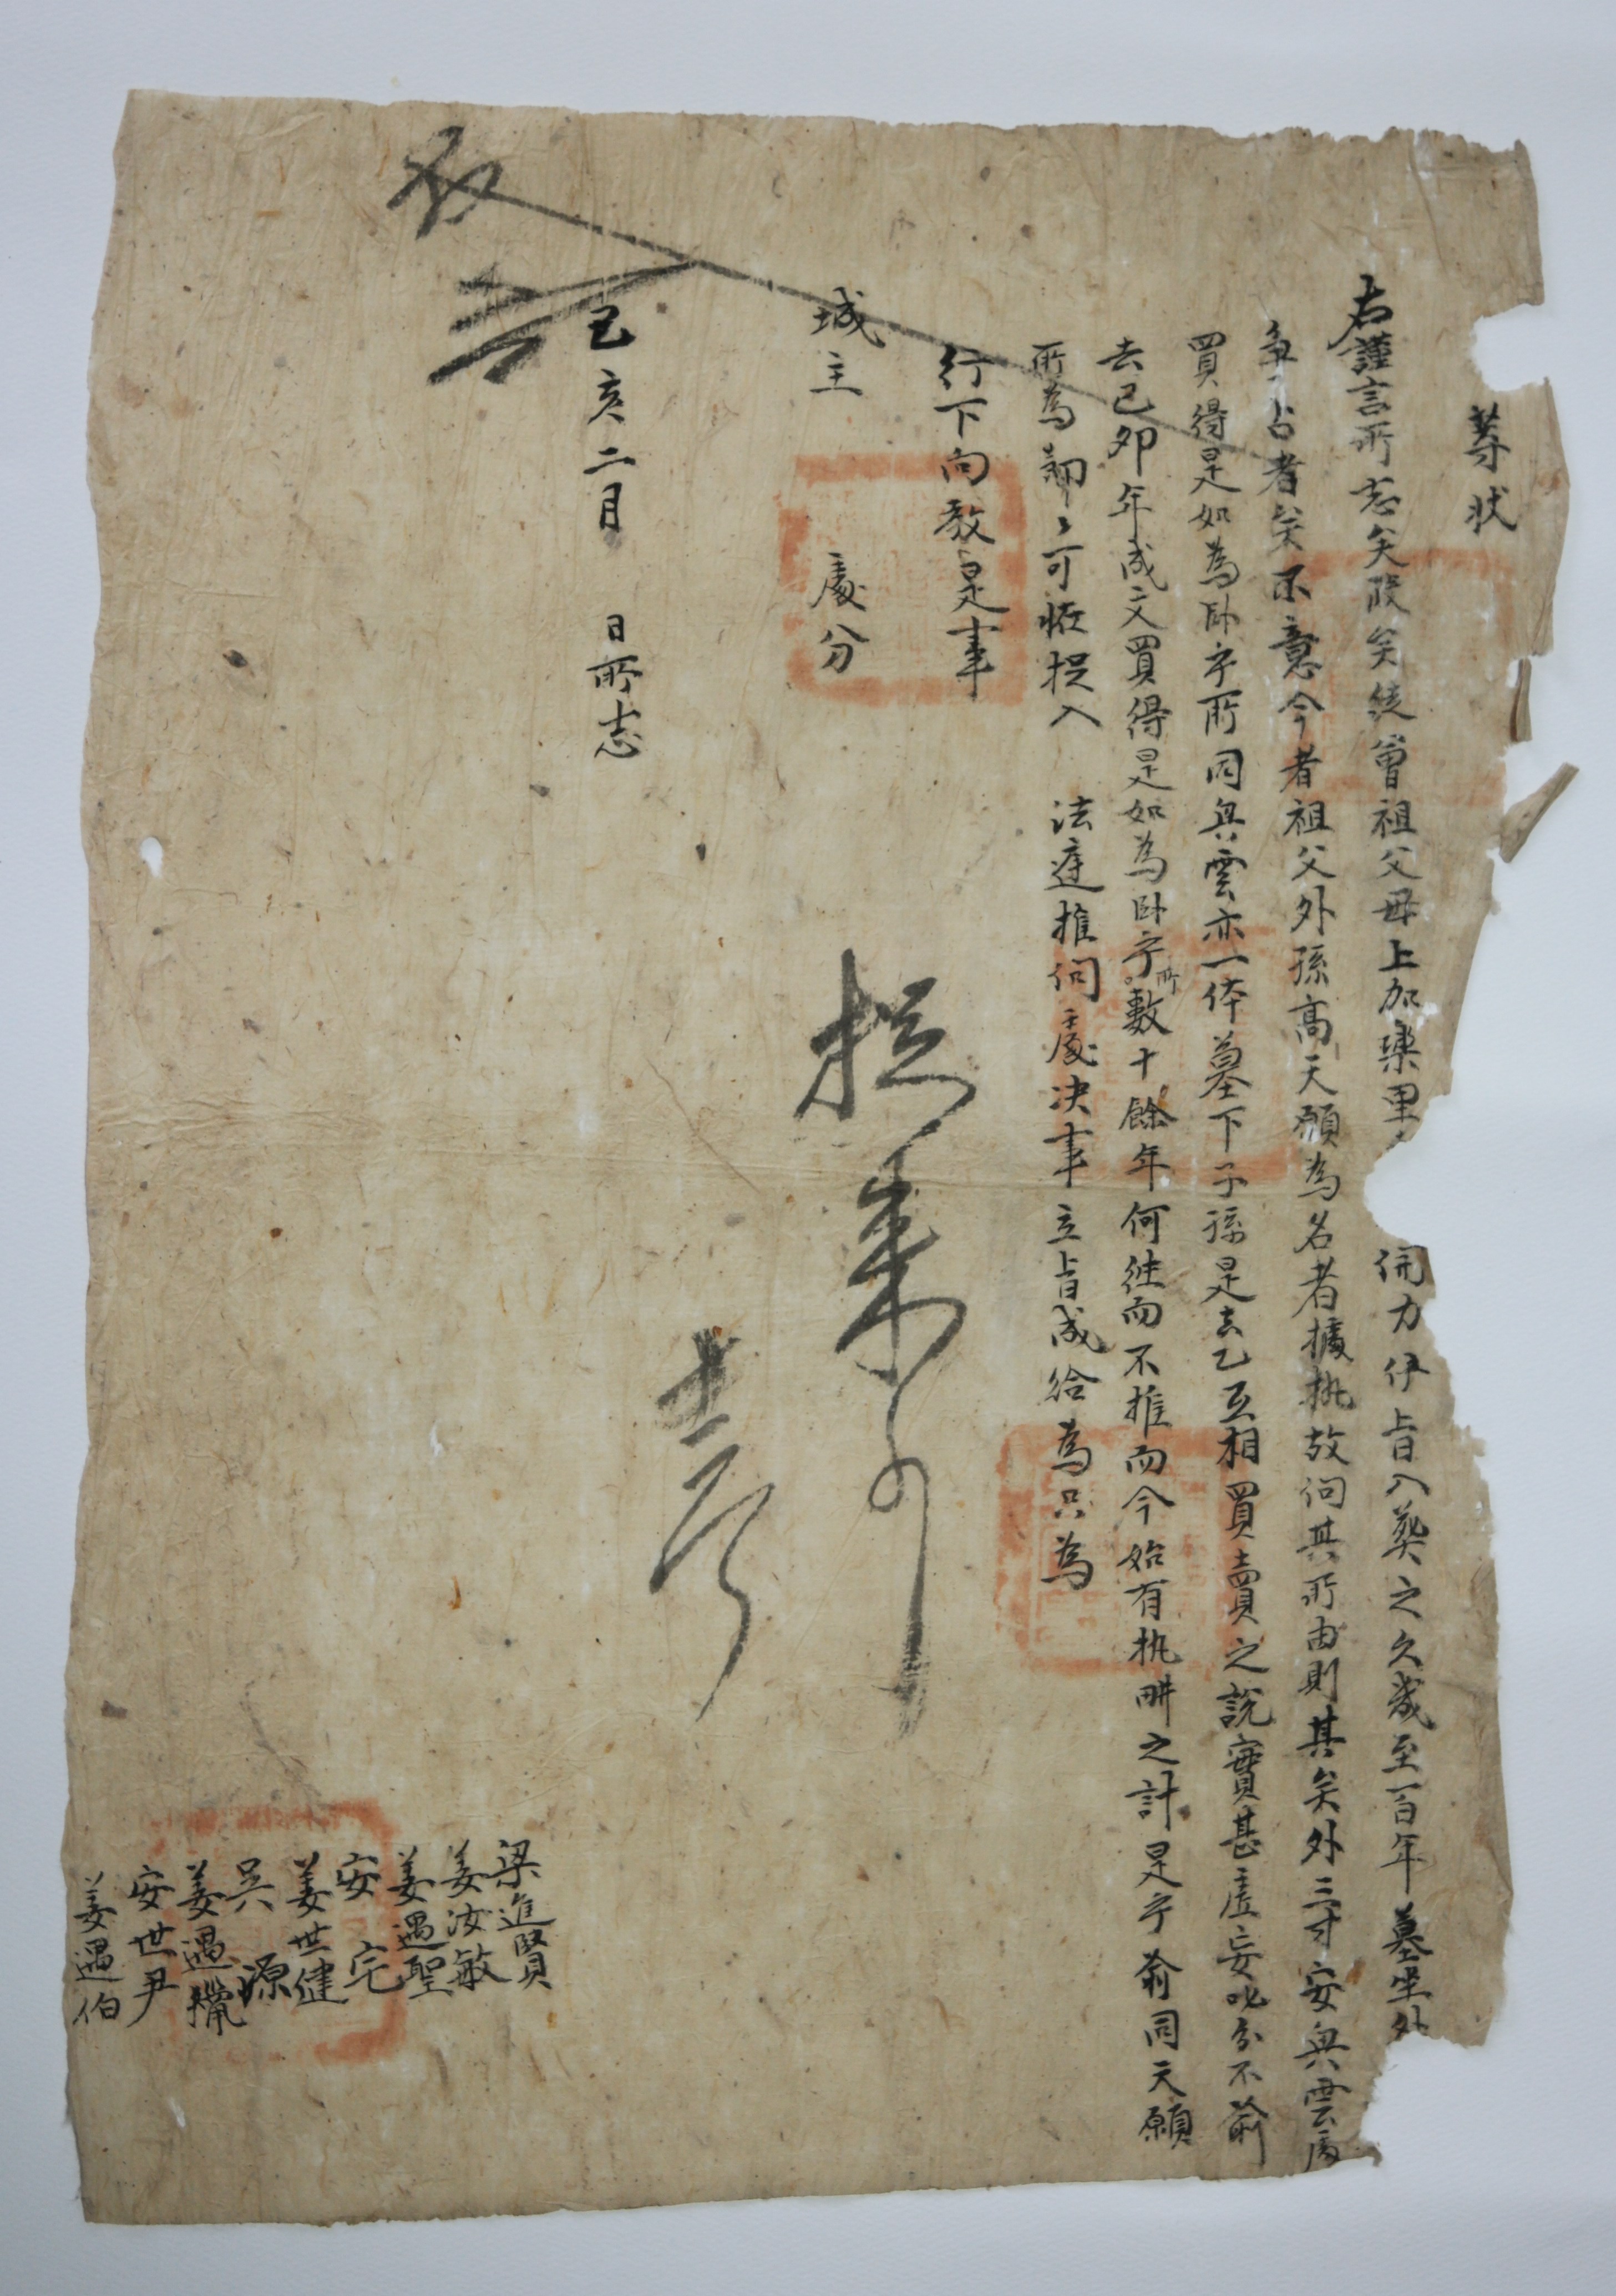 等狀
右謹言所志矣段矣徒曾祖父母上加樂里
伊旨入葬之久歲至一百年墓坐外
爭占者矣不意今者祖父外孫高天願為名者據執故問其所由則其矣外三寸安興雲處
買得是如為卧乎所同興雲亦一体墓下子孫是去乙互相買賣之說實甚虛妄叱分不喻
去己卯年成文買得是如為卧乎所數十餘年何徃而不推而今始有執畊之計是乎喻同天願
所為節〻可恠捉入 法庭推問處決事立旨成給為只為
行下向敎是事
城主 處分
己亥二月 日所志
捉來事
梁進賢
姜汝敏
姜遇聖
安 宅
姜世健
吳 源
姜遇
安世尹
姜遇伯